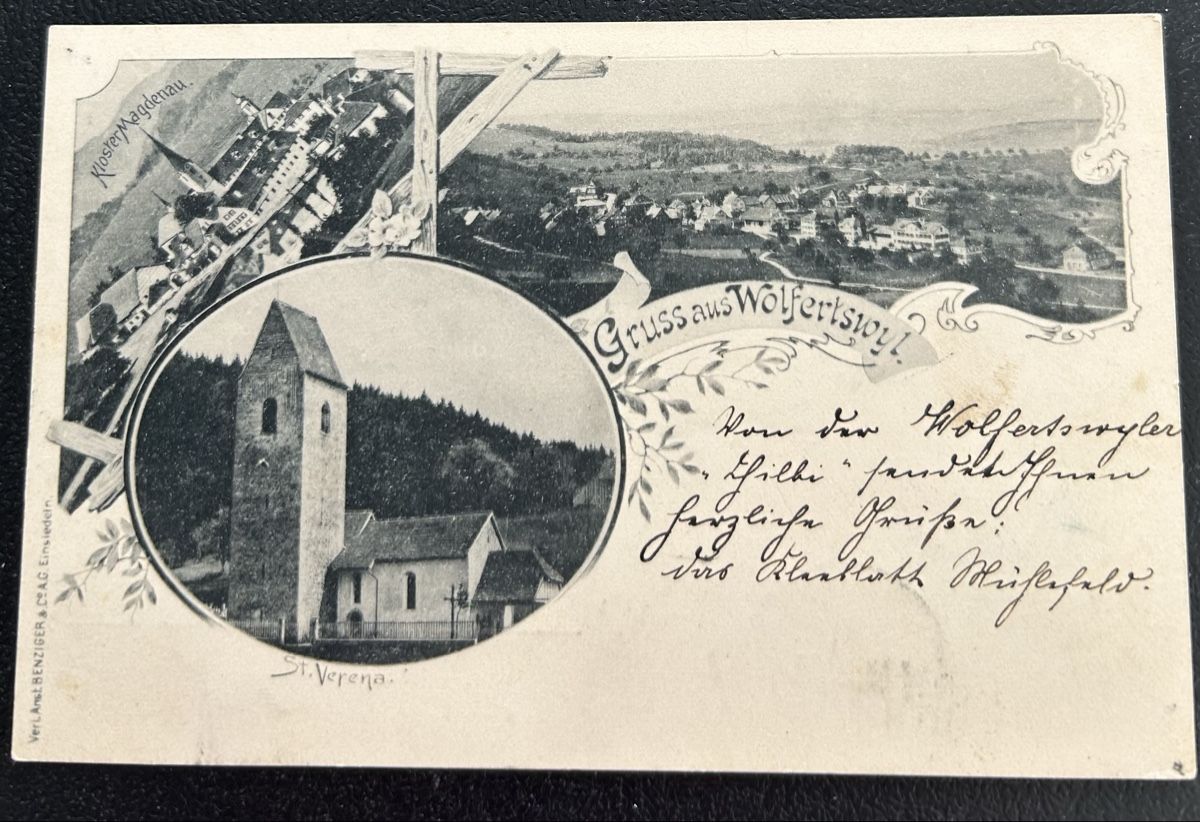 Kloster Magdenau.
Gruss aus Wolfertswyl.
Von der Wolfertswyler
"Chilbi" sendet Ihnen
herzliche Grüße:
das Kleeblatt Mühlefeld.
St. Verena.
Verl. Anst. BENZIGER & Co. A.G. Einsiedeln.